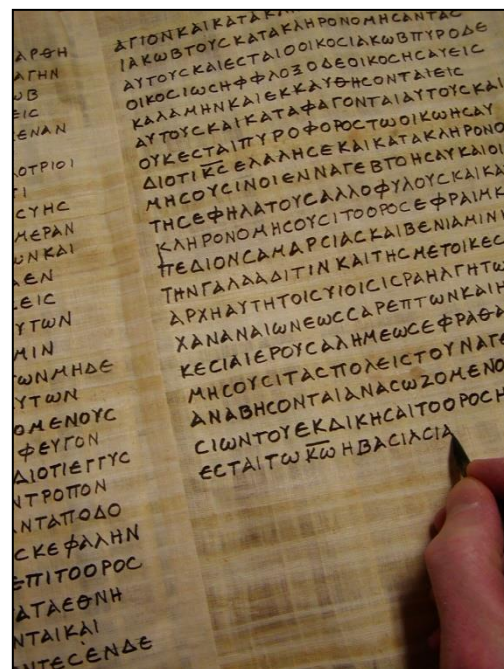 ΑΡΘΗ
ΑΓΗΝ
ΩΒ
ΕΙC
ΕΝΑΝ
ΛΟΤΡΙΟΙ
ΤΙ
CΥΗC
ΜΕΡΑΝ
ΩΝΚΑΙ
ΑΕΝ
CΕΙC
ΥΤΩΝ
ΜΙΝ
ΤΩΝΜΗΔΕ
ΥΤΩΝ
ΟΜΕΝΟΥC
ΦΕΥΓΟΝ
ΔΙΟΤΙΕΓΓΥC
ΝΤΡΟΠΟΝ
ΝΤΑΠΟΔΟ
CΚΕΦΑΛΗΝ
ΕΠΙΤΟΟΡΟC
ΑΤΑΕΘΝΗ
ΝΤΑΙΚΑΙ
ΝΤΕCΕΝΔΕ
ΑΓΙΟΝΚΑΙΚΑΤΑΚΛ
ΙΑΚΩΒΤΟΥCΚΑΤΑΚΛΗΡΟΝΟΜΗCΑΝΤΑC
ΑΥΤΟΥCΚΑΙΕCΤΑΙΟΟΙΚΟCΙΑΚΩΒΠΥΡΟΔΕ
ΟΙΚΟCΙΩCΗΦΦΛΟΞΟΔΕΟΙΚΟCΗCΑΥΕΙC
ΚΑΛΑΜΗΝΚΑΙΕΚΚΑΥΘΗCΟΝΤΑΙΕΙC
ΑΥΤΟΥCΚΑΙΚΑΤΑΦΑΓΟΝΤΑΙΑΥΤΟΥCΚΑΙ
ΟΥΚΕCΤΑΙΠΥΡΟΦΟΡΟCΤΩΟΙΚΩΗCΑΥ
ΔΙΟΤΙΚ̅C̅ΕΛΑΛΗCΕΚΑΙΚΑΤΑΚΛΗΡΟΝΟ
ΜΗCΟΥCΙΝΟΙΕΝΝΑΓΕΒΤΟΗCΑΥΚΑΙΟΙ
ΤΗCΕΦΗΛΑΤΟΥCΑΛΛΟΦΥΛΟΥCΚΑΙΚΑ
ΚΛΗΡΟΝΟΜΗCΟΥCΙΤΟΟΡΟCΕΦΡΑΙΜΚ
ΠΕΔΙΟΝCΑΜΑΡCΙΑCΚΑΙΒΕΝΙΑΜΙΝΚ
ΤΗΝΓΑΛΑΑΔΙΤΙΝΚΑΙΤΗCΜΕΤΟΙΚΕC
ΑΡΧΗΑΥΤΗΤΟΙCΥΙΟΙCΙCΡΑΗΛΓΗΤΩ
ΧΑΝΑΝΑΙΩΝΕΩCCΑΡΕΠΤΩΝΚΑΙΗ
ΚΕCΙΑΙΕΡΟΥCΑΛΗΜΕΩCΕΦΡΑΘΑ
ΜΗCΟΥCΙΤΑCΠΟΛΕΙCΤΟΥΝΑΓΕ
ΑΝΑΒΗCΟΝΤΑΙΑΝΑCΩΖΟΜΕΝΟ
CΙΩΝΤΟΥΕΚΔΙΚΗCΑΙΤΟΟΡΟCΗ
ΕCΤΑΙΤΩΚ̅Ω̅ΗΒΑCΙΛCΙΑ